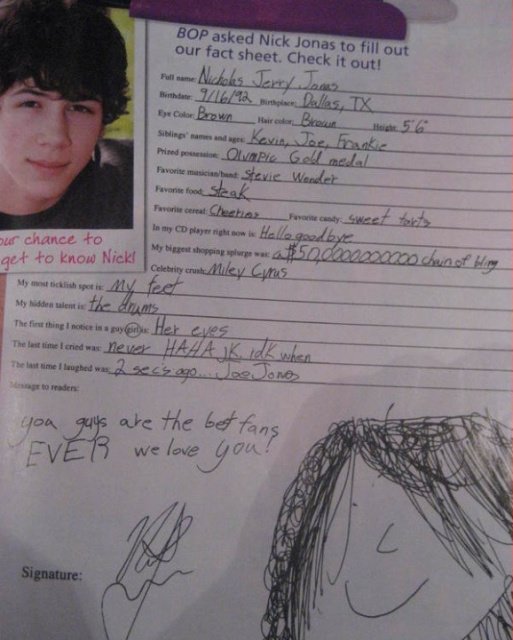 BOP asked Nick Jonas to fill out
our fact sheet. Check it out!
Full name: Nicholas Jerry Jonas
Birthdate: 9/16/92 Birthplace: Dallas, TX
Eye Color: Brown Hair color: Brown Height: 5'6"
Siblings' names and ages: Kevin, Joe, Frankie
Prized possession: Olympic Gold medal
Favorite musician/band: Stevie Wonder
Favorite food: Steak
Favorite cereal: Cheerios Favorite candy: sweet tarts
In my CD player right now is: Hellogoodbye
My biggest shopping splurge was: a $50,0000000000 chain of bling
Celebrity crush: Miley Cyrus
our chance to
get to know Nick!
My most ticklish spot is: My feet
My hidden talent is: the drums
The first thing I notice in a guy/girl is: Her eyes
The last time I cried was: never HAHA jK, idK when
The last time I laughed was: 2 secs ago... Joe Jonas
Message to readers:
you guys are the best fans
EVER we love you!
Signature: